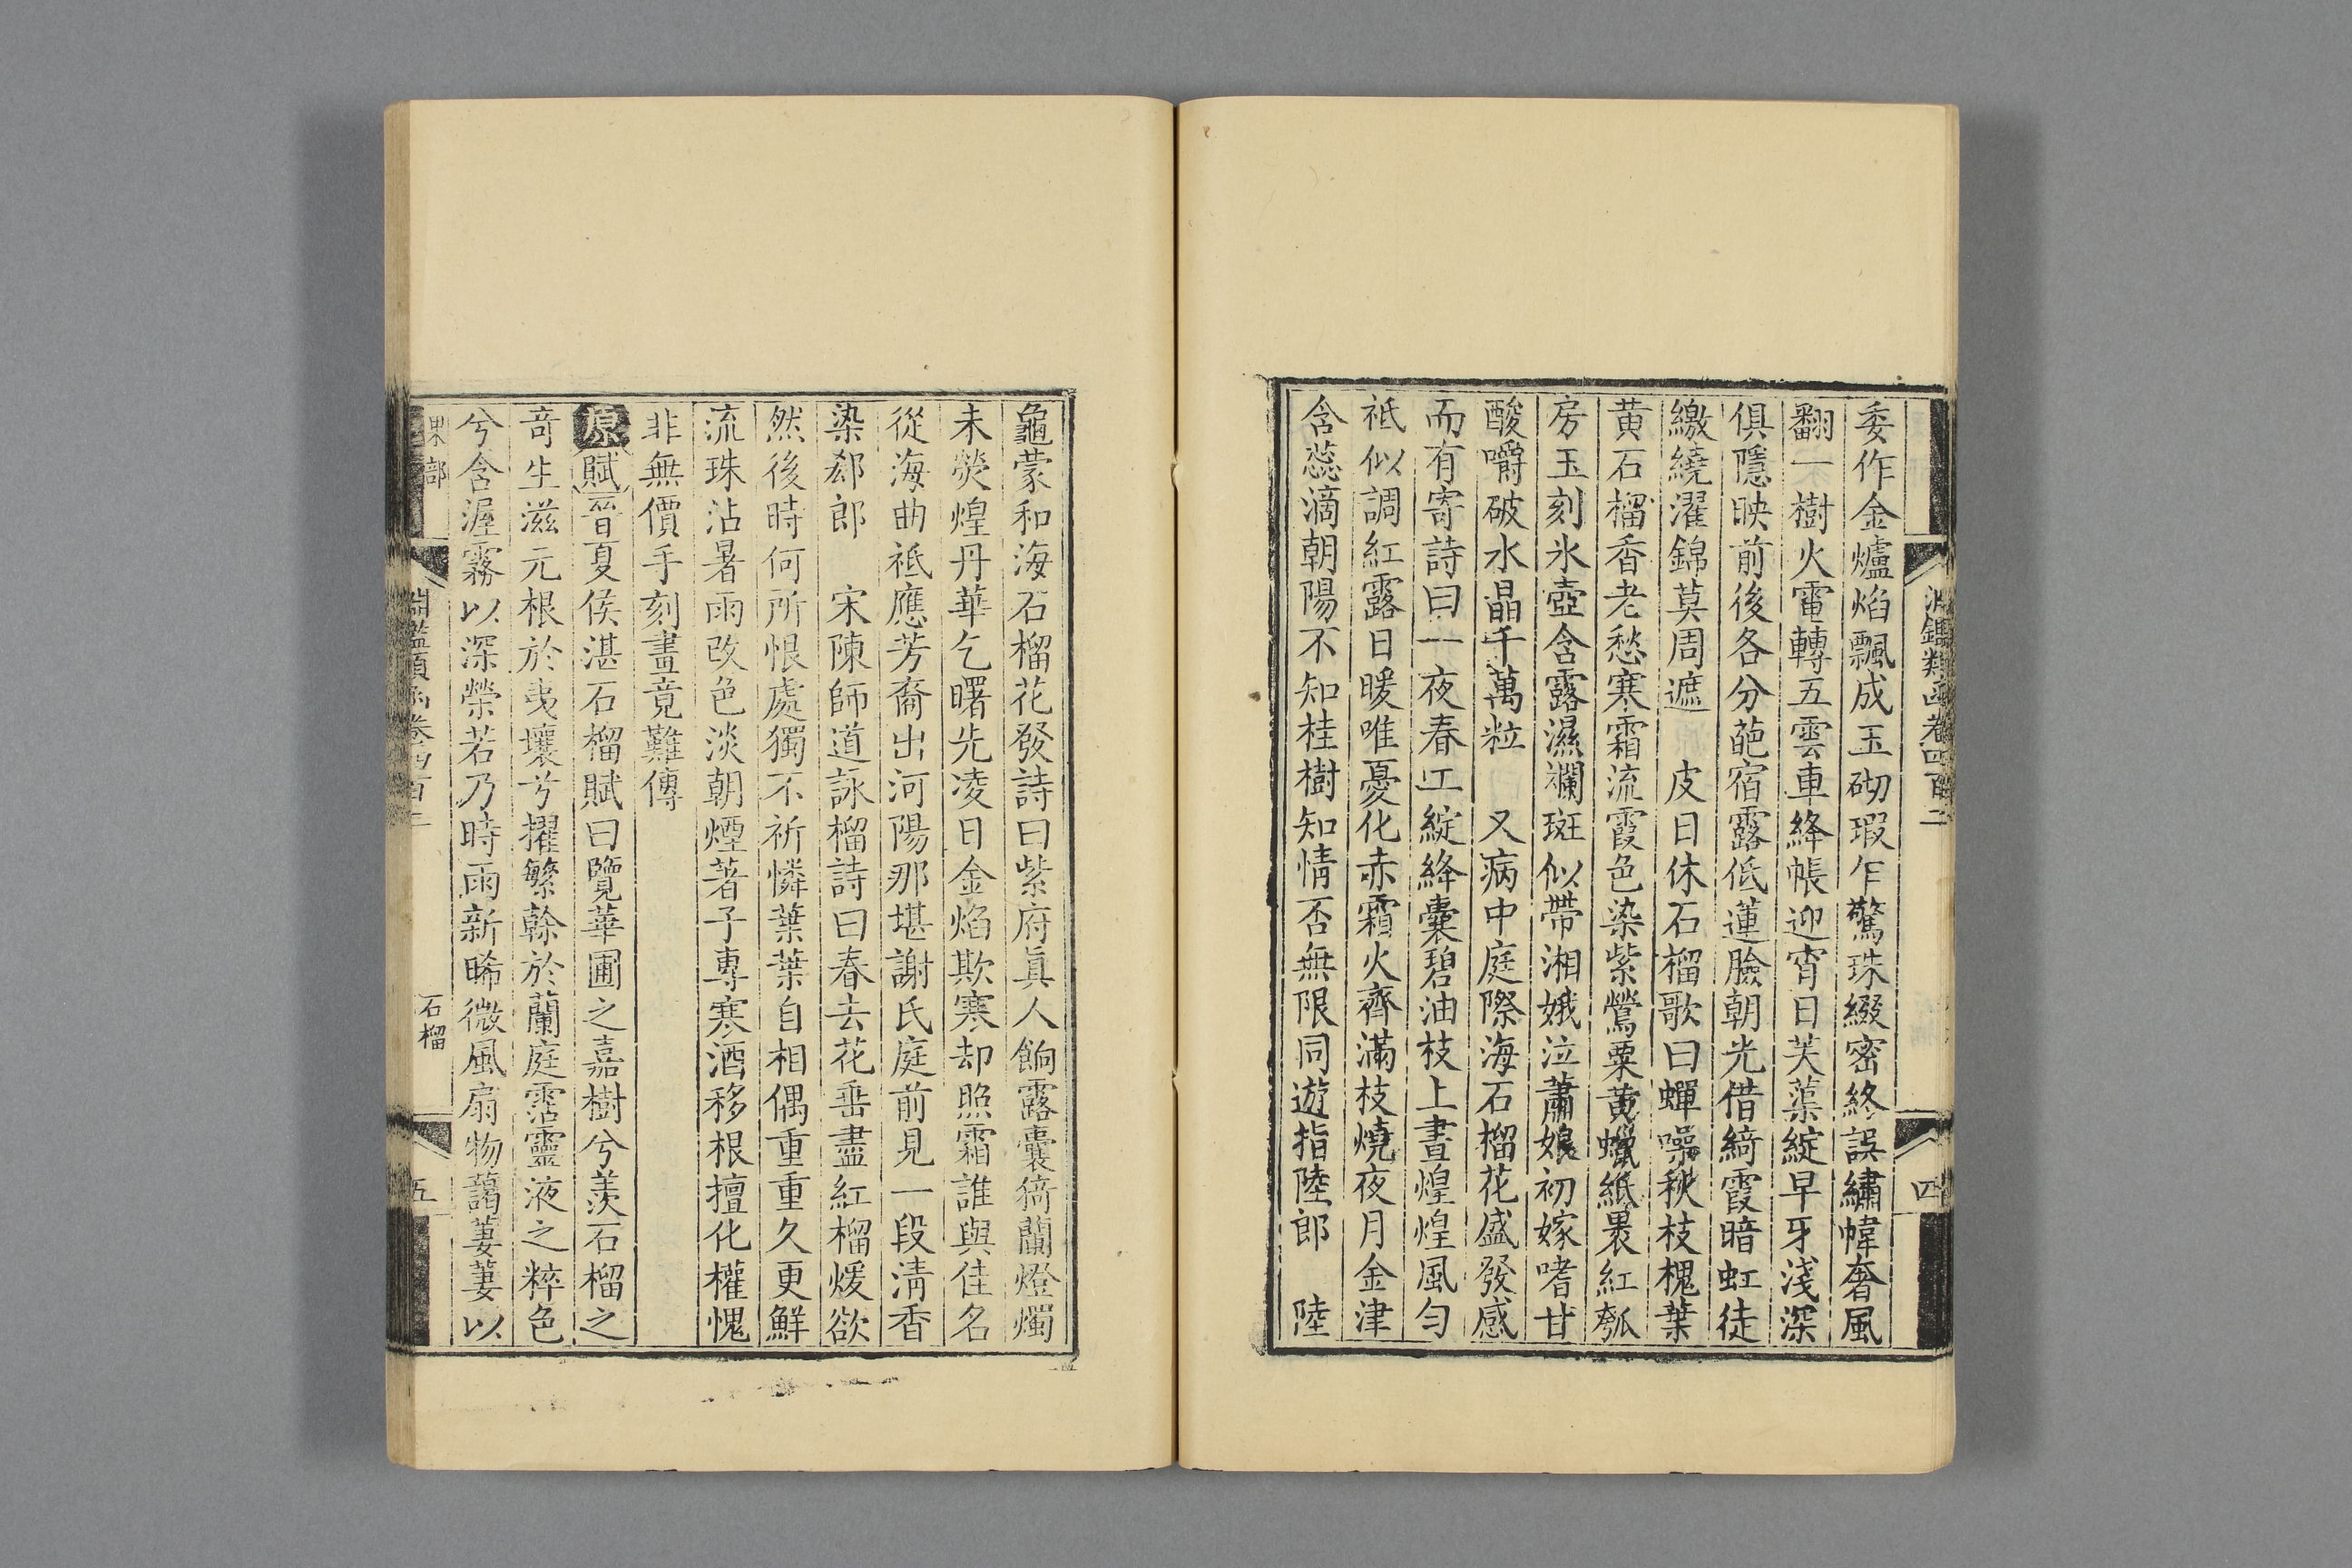 淵鑑類函卷四百二
四
委作金爐焰飄成玉砌瑕乍驚珠綴密終誤繡幃奢風
翻一樹火電轉五雲車絳帳迎宵日芙蕖綻早牙淺深
俱隱映前後各分葩宿露低蓮臉朝光借綺霞暗虹徒
繳繞濯錦莫周遮　皮日休石榴歌曰蟬噪秋枝槐葉
黄石榴香老愁寒霜流霞色染紫鶯粟黄蠟紙裹紅瓠
房玉刻氷壺含露濕斕斑似帶湘娥泣蕭娘初嫁嗜甘
酸嚼破水晶千萬粒　又病中庭際海石榴花盛發感
而有寄詩曰一夜春工綻絳囊碧油枝上晝煌煌風勻
祗似調紅露日暖唯憂化赤霜火齊滿枝燒夜月金津
含蕊滴朝陽不知桂樹知情否無限同遊指陸郎　陸
龜蒙和海石榴花發詩曰紫府眞人餉露囊猗蘭燈燭
未熒煌丹華乞曙先凌日金焰欺寒却照霜誰與佳名
從海曲祗應芳裔出河陽那堪謝氏庭前見一段清香
染郄郎　宋陳師道詠榴詩曰春去花垂盡紅榴煖欲
然後時何所恨處獨不祈憐葉葉自相偶重重久更鮮
流珠沾暑雨改色淡朝煙著子專寒酒移根擅化權愧
非無價手刻畫竟難傳
原賦晉夏侯湛石榴賦曰覽華圃之嘉樹兮羡石榴之
奇生滋元根於夷壤兮擢繁幹於蘭庭霑靈液之粹色
兮含渥霧以深榮若乃時雨新晞微風扇物藹萋萋以
果部
淵鑑類函卷四百二
石榴
五